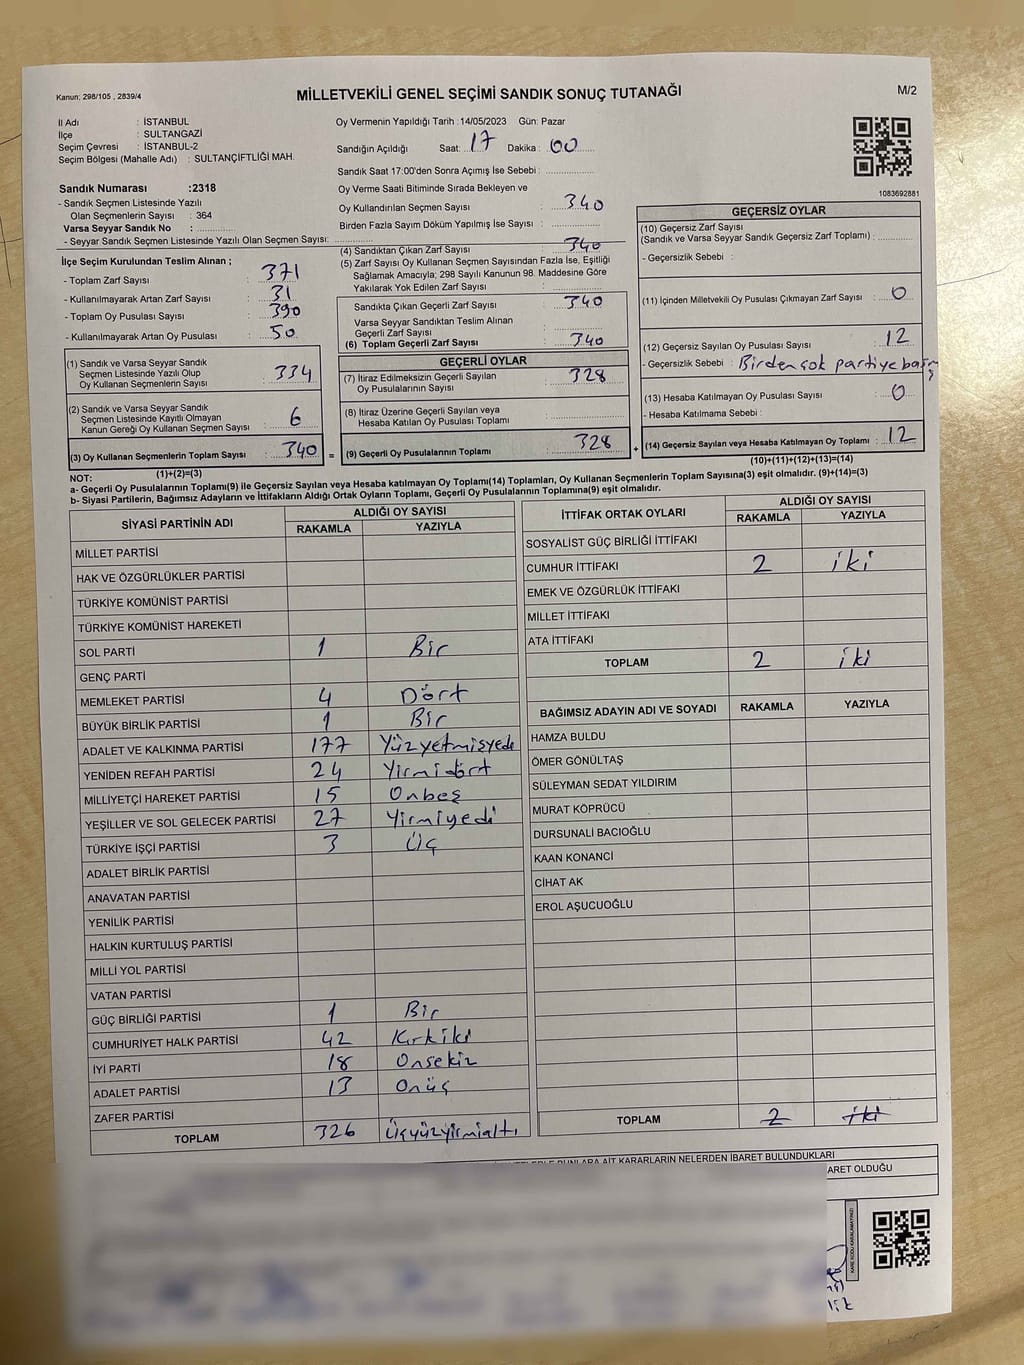 Kanun; 298/105 , 2839/4
MİLLETVEKİLİ GENEL SEÇİMİ SANDIK SONUÇ TUTANAĞI
M/2
İl Adı : İSTANBUL
İlçe : SULTANGAZİ
Seçim Çevresi : İSTANBUL-2
Seçim Bölgesi (Mahalle Adı) : SULTANÇİFTLİĞİ MAH.
Sandık Numarası :2318
- Sandık Seçmen Listesinde Yazılı
Olan Seçmenlerin Sayısı : 364
Varsa Seyyar Sandık No :
- Seyyar Sandık Seçmen Listesinde Yazılı Olan Seçmen Sayısı:
İlçe Seçim Kurulundan Teslim Alınan ;
- Toplam Zarf Sayısı : 371
- Kullanılmayarak Artan Zarf Sayısı : 31
- Toplam Oy Pusulası Sayısı : 390
- Kullanılmayarak Artan Oy Pusulası : 50
(1) Sandık ve Varsa Seyyar Sandık
Seçmen Listesinde Yazılı Olup
Oy Kullanan Seçmenlerin Sayısı : 334
(2) Sandık ve Varsa Seyyar Sandık
Seçmen Listesinde Kayıtlı Olmayan
Kanun Gereği Oy Kullanan Seçmen Sayısı : 6
(3) Oy Kullanan Seçmenlerin Toplam Sayısı : 340
(1)+(2)=(3)
Oy Vermenin Yapıldığı Tarih :14/05/2023 Gün: Pazar
Sandığın Açıldığı Saat: 17 Dakika : 00
Sandık Saat 17:00'den Sonra Açılmış İse Sebebi :
Oy Verme Saati Bitiminde Sırada Bekleyen ve
Oy Kullandırılan Seçmen Sayısı : 340
Birden Fazla Sayım Döküm Yapılmış İse Sayısı :
(4) Sandıktan Çıkan Zarf Sayısı : 340
(5) Zarf Sayısı Oy Kullanan Seçmen Sayısından Fazla İse, Eşitliği
Sağlamak Amacıyla; 298 Sayılı Kanunun 98. Maddesine Göre
Yakılarak Yok Edilen Zarf Sayısı :
Sandıkta Çıkan Geçerli Zarf Sayısı : 340
Varsa Seyyar Sandıktan Teslim Alınan
Geçerli Zarf Sayısı :
(6) Toplam Geçerli Zarf Sayısı : 340
GEÇERLİ OYLAR
(7) İtiraz Edilmeksizin Geçerli Sayılan
Oy Pusulalarının Sayısı : 328
(8) İtiraz Üzerine Geçerli Sayılan veya
Hesaba Katılan Oy Pusulası Toplamı :
= (9) Geçerli Oy Pusulalarının Toplamı : 328 +
1083692881
GEÇERSİZ OYLAR
(10) Geçersiz Zarf Sayısı
(Sandık ve Varsa Seyyar Sandık Geçersiz Zarf Toplamı) :
- Geçersizlik Sebebi :
(11) İçinden Milletvekili Oy Pusulası Çıkmayan Zarf Sayısı : 0
(12) Geçersiz Sayılan Oy Pusulası Sayısı : 12
- Geçersizlik Sebebi : Birden çok partiye
(13) Hesaba Katılmayan Oy Pusulası Sayısı : 0
- Hesaba Katılmama Sebebi :
(14) Geçersiz Sayılan veya Hesaba Katılmayan Oy Toplamı : 12
(10)+(11)+(12)+(13)=(14)
NOT:
a- Geçerli Oy Pusulalarının Toplamı(9) ile Geçersiz Sayılan veya Hesaba katılmayan Oy Toplamı(14) Toplamları, Oy Kullanan Seçmenlerin Toplam Sayısına(3) eşit olmalıdır. (9)+(14)=(3)
b- Siyasi Partilerin, Bağımsız Adayların ve İttifakların Aldığı Ortak Oyların Toplamı, Geçerli Oy Pusulalarının Toplamına(9) eşit olmalıdır.
SİYASİ PARTİNİN ADI ALDIĞI OY SAYISI
RAKAMLA YAZIYLA
MİLLET PARTİSİ
HAK VE ÖZGÜRLÜKLER PARTİSİ
TÜRKİYE KOMÜNİST PARTİSİ
TÜRKİYE KOMÜNİST HAREKETİ
SOL PARTİ 1 Bir
GENÇ PARTİ
MEMLEKET PARTİSİ 4 Dört
BÜYÜK BİRLİK PARTİSİ 1 Bir
ADALET VE KALKINMA PARTİSİ 177 Yüzyetmişyedi
YENİDEN REFAH PARTİSİ 24 Yirmidört
MİLLİYETÇİ HAREKET PARTİSİ 15 Onbeş
YEŞİLLER VE SOL GELECEK PARTİSİ 27 Yirmiyedi
TÜRKİYE İŞÇİ PARTİSİ 3 Üç
ADALET BİRLİK PARTİSİ
ANAVATAN PARTİSİ
YENİLİK PARTİSİ
HALKIN KURTULUŞ PARTİSİ
MİLLİ YOL PARTİSİ
VATAN PARTİSİ
GÜÇ BİRLİĞİ PARTİSİ 1 Bir
CUMHURİYET HALK PARTİSİ 42 Kırkiki
İYİ PARTİ 18 Onsekiz
ADALET PARTİSİ 13 Onüç
ZAFER PARTİSİ
TOPLAM 326 Üçyüzyirmialtı
İTTİFAK ORTAK OYLARI ALDIĞI OY SAYISI
RAKAMLA YAZIYLA
SOSYALİST GÜÇ BİRLİĞİ İTTİFAKI
CUMHUR İTTİFAKI 2 iki
EMEK VE ÖZGÜRLÜK İTTİFAKI
MİLLET İTTİFAKI
ATA İTTİFAKI
TOPLAM 2 iki
BAĞIMSIZ ADAYIN ADI VE SOYADI RAKAMLA YAZIYLA
HAMZA BULDU
ÖMER GÖNÜLTAŞ
SÜLEYMAN SEDAT YILDIRIM
MURAT KÖPRÜCÜ
DURSUNALİ BACIOĞLU
KAAN KONANCİ
CİHAT AK
EROL AŞUCUOĞLU
TOPLAM 2 iki
BUNLARA AİT KARARLARIN NELERDEN İBARET BULUNDUKLARI
OLDUĞU